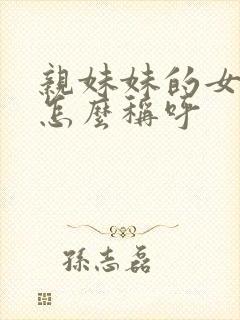 親妹妹的女
怎麼稱呼
孫志磊